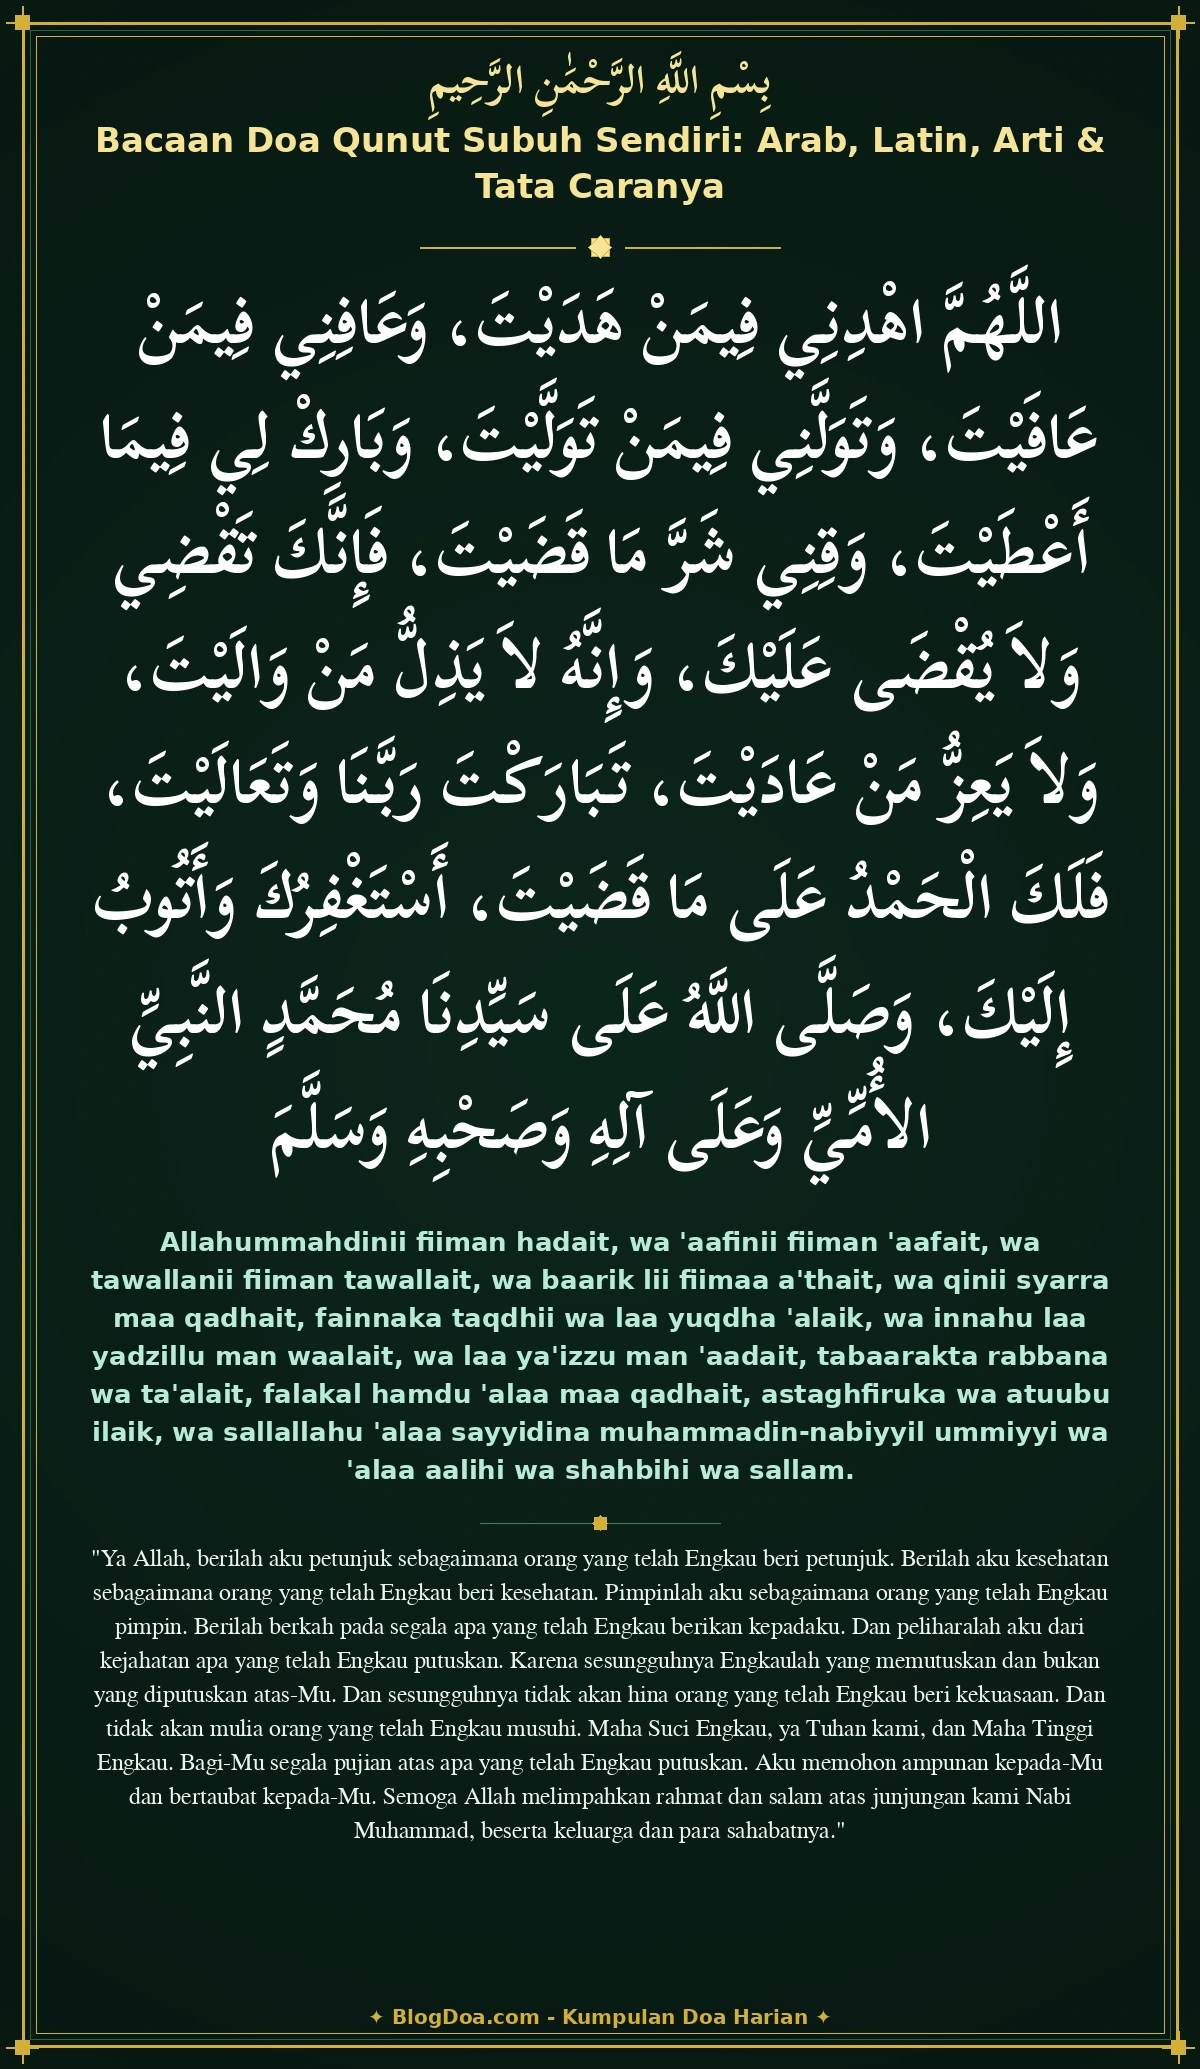 بِسْمِ اللَّهِ الرَّحْمَٰنِ الرَّحِيمِ
Bacaan Doa Qunut Subuh Sendiri: Arab, Latin, Arti &
Tata Caranya
اللَّهُمَّ اهْدِنِي فِيمَنْ هَدَيْتَ، وَعَافِنِي فِيمَنْ
عَافَيْتَ، وَتَوَلَّنِي فِيمَنْ تَوَلَّيْتَ، وَبَارِكْ لِي فِيمَا
أَعْطَيْتَ، وَقِنِي شَرَّ مَا قَضَيْتَ، فَإِنَّكَ تَقْضِي
وَلاَ يُقْضَى عَلَيْكَ، وَإِنَّهُ لاَ يَذِلُّ مَنْ وَالَيْتَ،
وَلاَ يَعِزُّ مَنْ عَادَيْتَ، تَبَارَكْتَ رَبَّنَا وَتَعَالَيْتَ،
فَلَكَ الْحَمْدُ عَلَى مَا قَضَيْتَ، أَسْتَغْفِرُكَ وَأَتُوبُ
إِلَيْكَ، وَصَلَّى اللَّهُ عَلَى سَيِّدِنَا مُحَمَّدٍ النَّبِيِّ
الأُمِّيِّ وَعَلَى آلِهِ وَصَحْبِهِ وَسَلَّمَ
Allahummahdinii fiiman hadait, wa 'aafinii fiiman 'aafait, wa
tawallanii fiiman tawallait, wa baarik lii fiimaa a'thait, wa qinii syarra
maa qadhait, fainnaka taqdhii wa laa yuqdha 'alaik, wa innahu laa
yadzillu man waalait, wa laa ya'izzu man 'aadait, tabaarakta rabbana
wa ta'alait, falakal hamdu 'alaa maa qadhait, astaghfiruka wa atuubu
ilaik, wa sallallahu 'alaa sayyidina muhammadin-nabiyyil ummiyyi wa
'alaa aalihi wa shahbihi wa sallam.
"Ya Allah, berilah aku petunjuk sebagaimana orang yang telah Engkau beri petunjuk. Berilah aku kesehatan
sebagaimana orang yang telah Engkau beri kesehatan. Pimpinlah aku sebagaimana orang yang telah Engkau
pimpin. Berilah berkah pada segala apa yang telah Engkau berikan kepadaku. Dan peliharalah aku dari
kejahatan apa yang telah Engkau putuskan. Karena sesungguhnya Engkaulah yang memutuskan dan bukan
yang diputuskan atas-Mu. Dan sesungguhnya tidak akan hina orang yang telah Engkau beri kekuasaan. Dan
tidak akan mulia orang yang telah Engkau musuhi. Maha Suci Engkau, ya Tuhan kami, dan Maha Tinggi
Engkau. Bagi-Mu segala pujian atas apa yang telah Engkau putuskan. Aku memohon ampunan kepada-Mu
dan bertaubat kepada-Mu. Semoga Allah melimpahkan rahmat dan salam atas junjungan kami Nabi
Muhammad, beserta keluarga dan para sahabatnya."
✦ BlogDoa.com - Kumpulan Doa Harian ✦